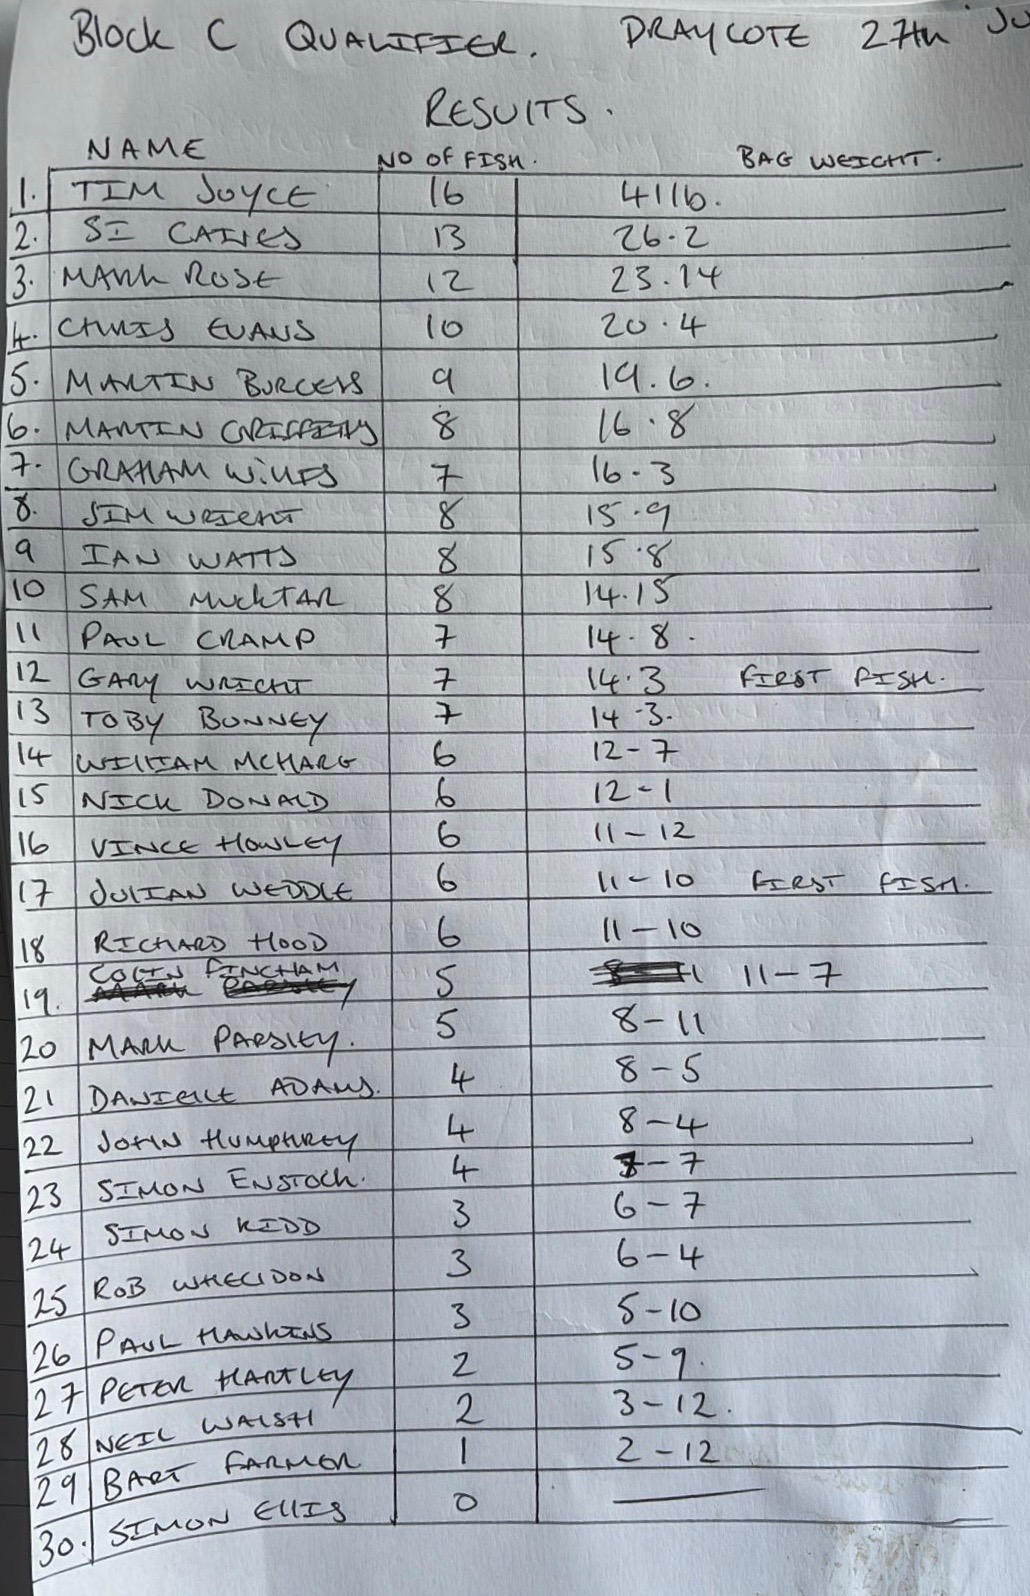 Block C QUALIFIER. DRAYCOTE 27th Ju
RESULTS.
NAME NO OF FISH. BAG WEIGHT.
1. TIM JOYCE 16 41lb.
2. SI CAINES 13 26.2
3. MARK ROSE 12 23.14
4. CHRIS EVANS 10 20.4
5. MARTIN BURGESS 9 19.6.
6. MARTIN GRIFFITHS 8 16.8
7. GRAHAM WILLES 7 16-3
8. JIM WRIGHT 8 15.9
9 IAN WATTS 8 15.8
10 SAM MUCKTAR 8 14.15
11 PAUL CRAMP 7 14.8.
12 GARY WRIGHT 7 14.3 FIRST FISH.
13 TOBY BUNNEY 7 14-3.
14 WILLIAM MCHARG 6 12-7
15 NICK DONALD 6 12-1
16 VINCE HOWLEY 6 11-12
17 JULIAN WEDDLE 6 11-10 FIRST FISH.
18 RICHARD HOOD 6 11-10
19. COLIN FINCHAM 5 11-7
20 MARK PARSLEY. 5 8-11
21 DANIELLE ADAMS. 4 8-5
22 JOHN HUMPHREY 4 8-4
23 SIMON ENSTOCK. 4 7-7
24 SIMON KIDD 3 6-7
25 ROB WHELDON 3 6-4
26 PAUL HAWKINS 3 5-10
27 PETER HARTLEY 2 5-9.
28 NEIL WALSH 2 3-12.
29 BART FARMER 1 2-12
30. SIMON ELLIS 0